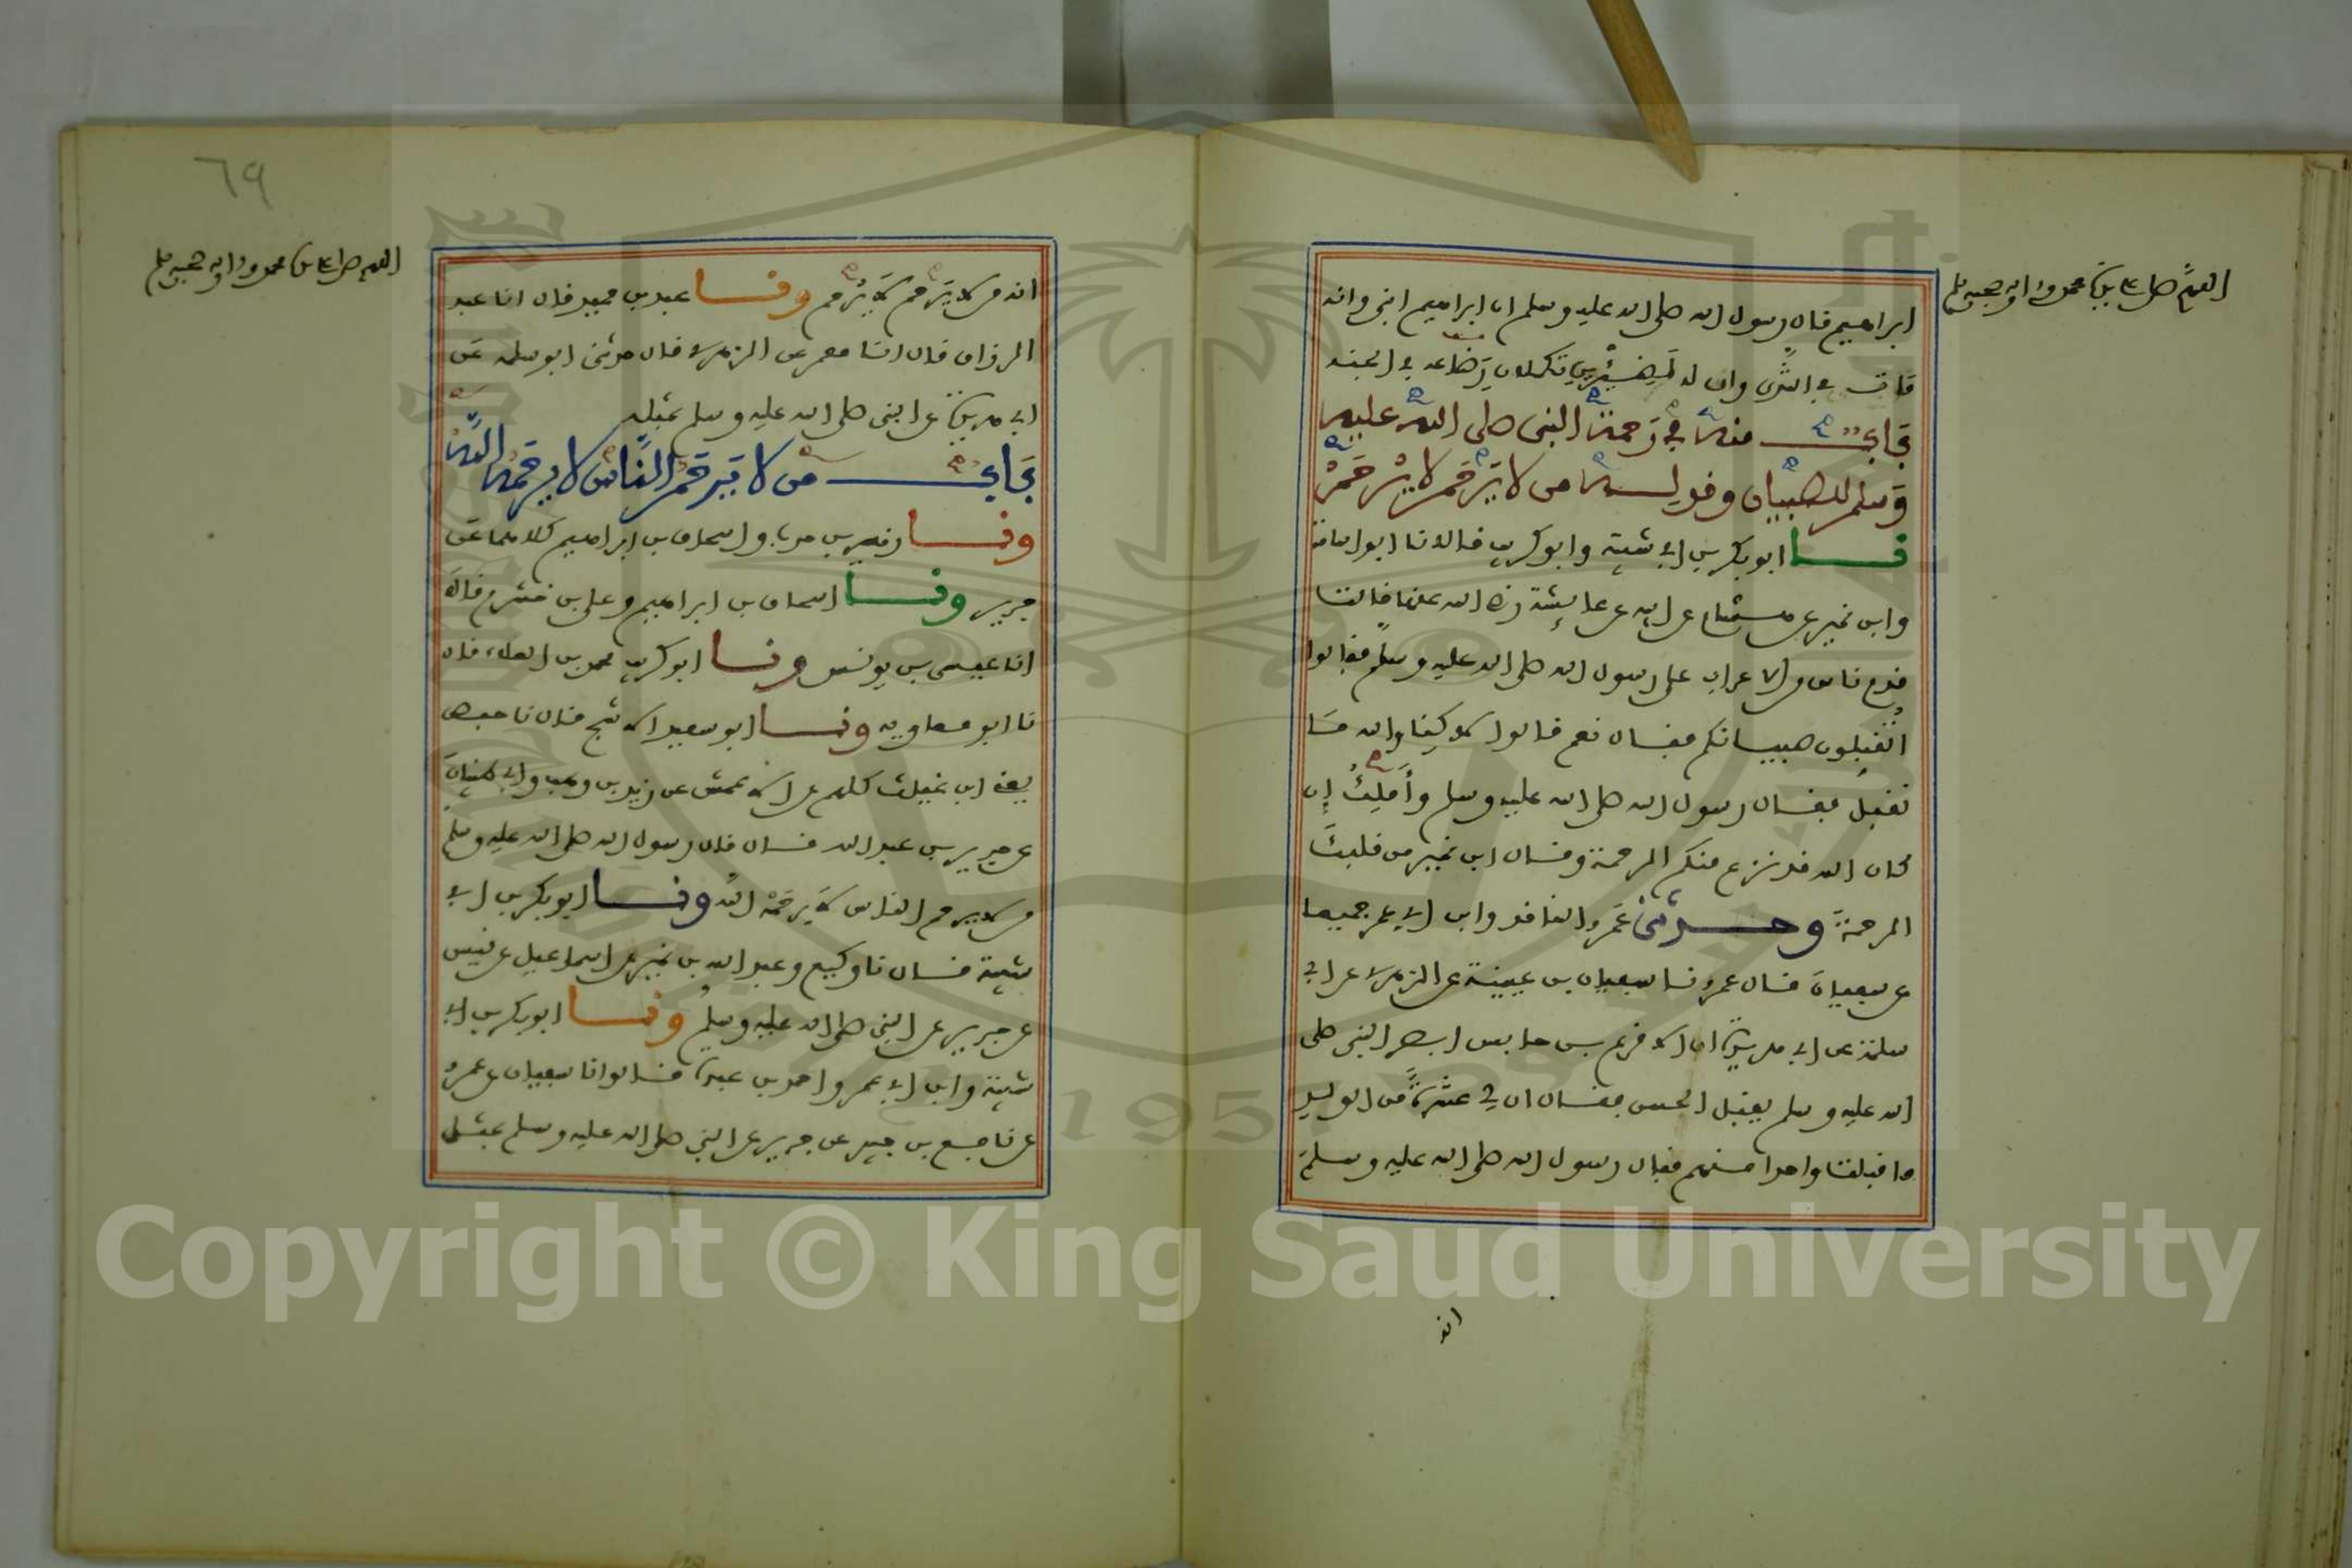 اللهم صل على سيدنا محمد واله وصحبه وسلم
ابراهيم قال رسول الله صلى الله عليه وسلم ان ابراهيم ابنى وانه
مات في الثدى وان له لظئرين تكملان رضاعه في الجنة
باب منه في رحمة النبى صلى الله عليه
وسلم للصبيان وقوله من لا يرحم لا يرحم
نا ابو بكر بن ابى شيبة وابو كريب قالا نا ابو اسامة
وابن نمير عن هشام عن ابيه عن عايشة رضى الله عنها قالت
قدم ناس من الاعراب على رسول الله صلى الله عليه وسلم فقالوا
اتقبلون صبيانكم فقال نعم قالوا لاكنا والله ما
نقبل فقال رسول الله صلى الله عليه وسلم وأملك إن
كان الله قد نزع منكم الرحمة وقال ابن نمير من قلبك
الرحمة وحدثنى عمرو الناقد وابن ابى عمر جميعا
عن سفيان قال عمرو نا سفيان بن عيينة عن الزهرى عن ابى
سلمة عن ابى هريرة ان الاقرع بن حابس ابصر النبى صلى
الله عليه وسلم يقبل الحسن فقال ان لى عشرة من الولد
ما قبلت واحدا منهم فقال رسول الله صلى الله عليه وسلم
انه
٦٩
اللهم صل على سيدنا محمد واله وصحبه وسلم
انه من لا يرحم لا يرحم ونا عبد بن حميد قال انا عبد
الرزاق قال انا معمر عن الزهرى قال حدثنى ابو سلمه عن
ابى هريرة عن النبى صلى الله عليه وسلم بمثله
باب من لا يرحم الناس لا يرحمه الله
ونا زهير بن حرب واسحاق بن ابراهيم كلاهما عن
جرير ونا اسحاق بن ابراهيم وعلى بن خشرم قالا
انا عيسى بن يونس ونا ابو كريب محمد بن العلاء قال
نا ابو معاويه ونا ابو سعيد الاشج قال نا حفص
يعنى ابن غياث كلهم عن الاعمش عن زيد بن وهب وابى ظبيان
عن جرير بن عبد الله قال قال رسول الله صلى الله عليه وسلم
من لا يرحم الناس لا يرحمه الله ونا ابو بكر بن ابى
شيبة قال نا وكيع وعبد الله بن نمير عن اسماعيل عن قيس
عن جرير عن النبى صلى الله عليه وسلم ونا ابو بكر بن ابى
شيبة وابن ابى عمر واحمد بن عبدة قالوا نا سفيان عن عمرو
عن نافع بن جبير عن جرير عن النبى صلى الله عليه وسلم بمثل
1957
Copyright © King Saud University